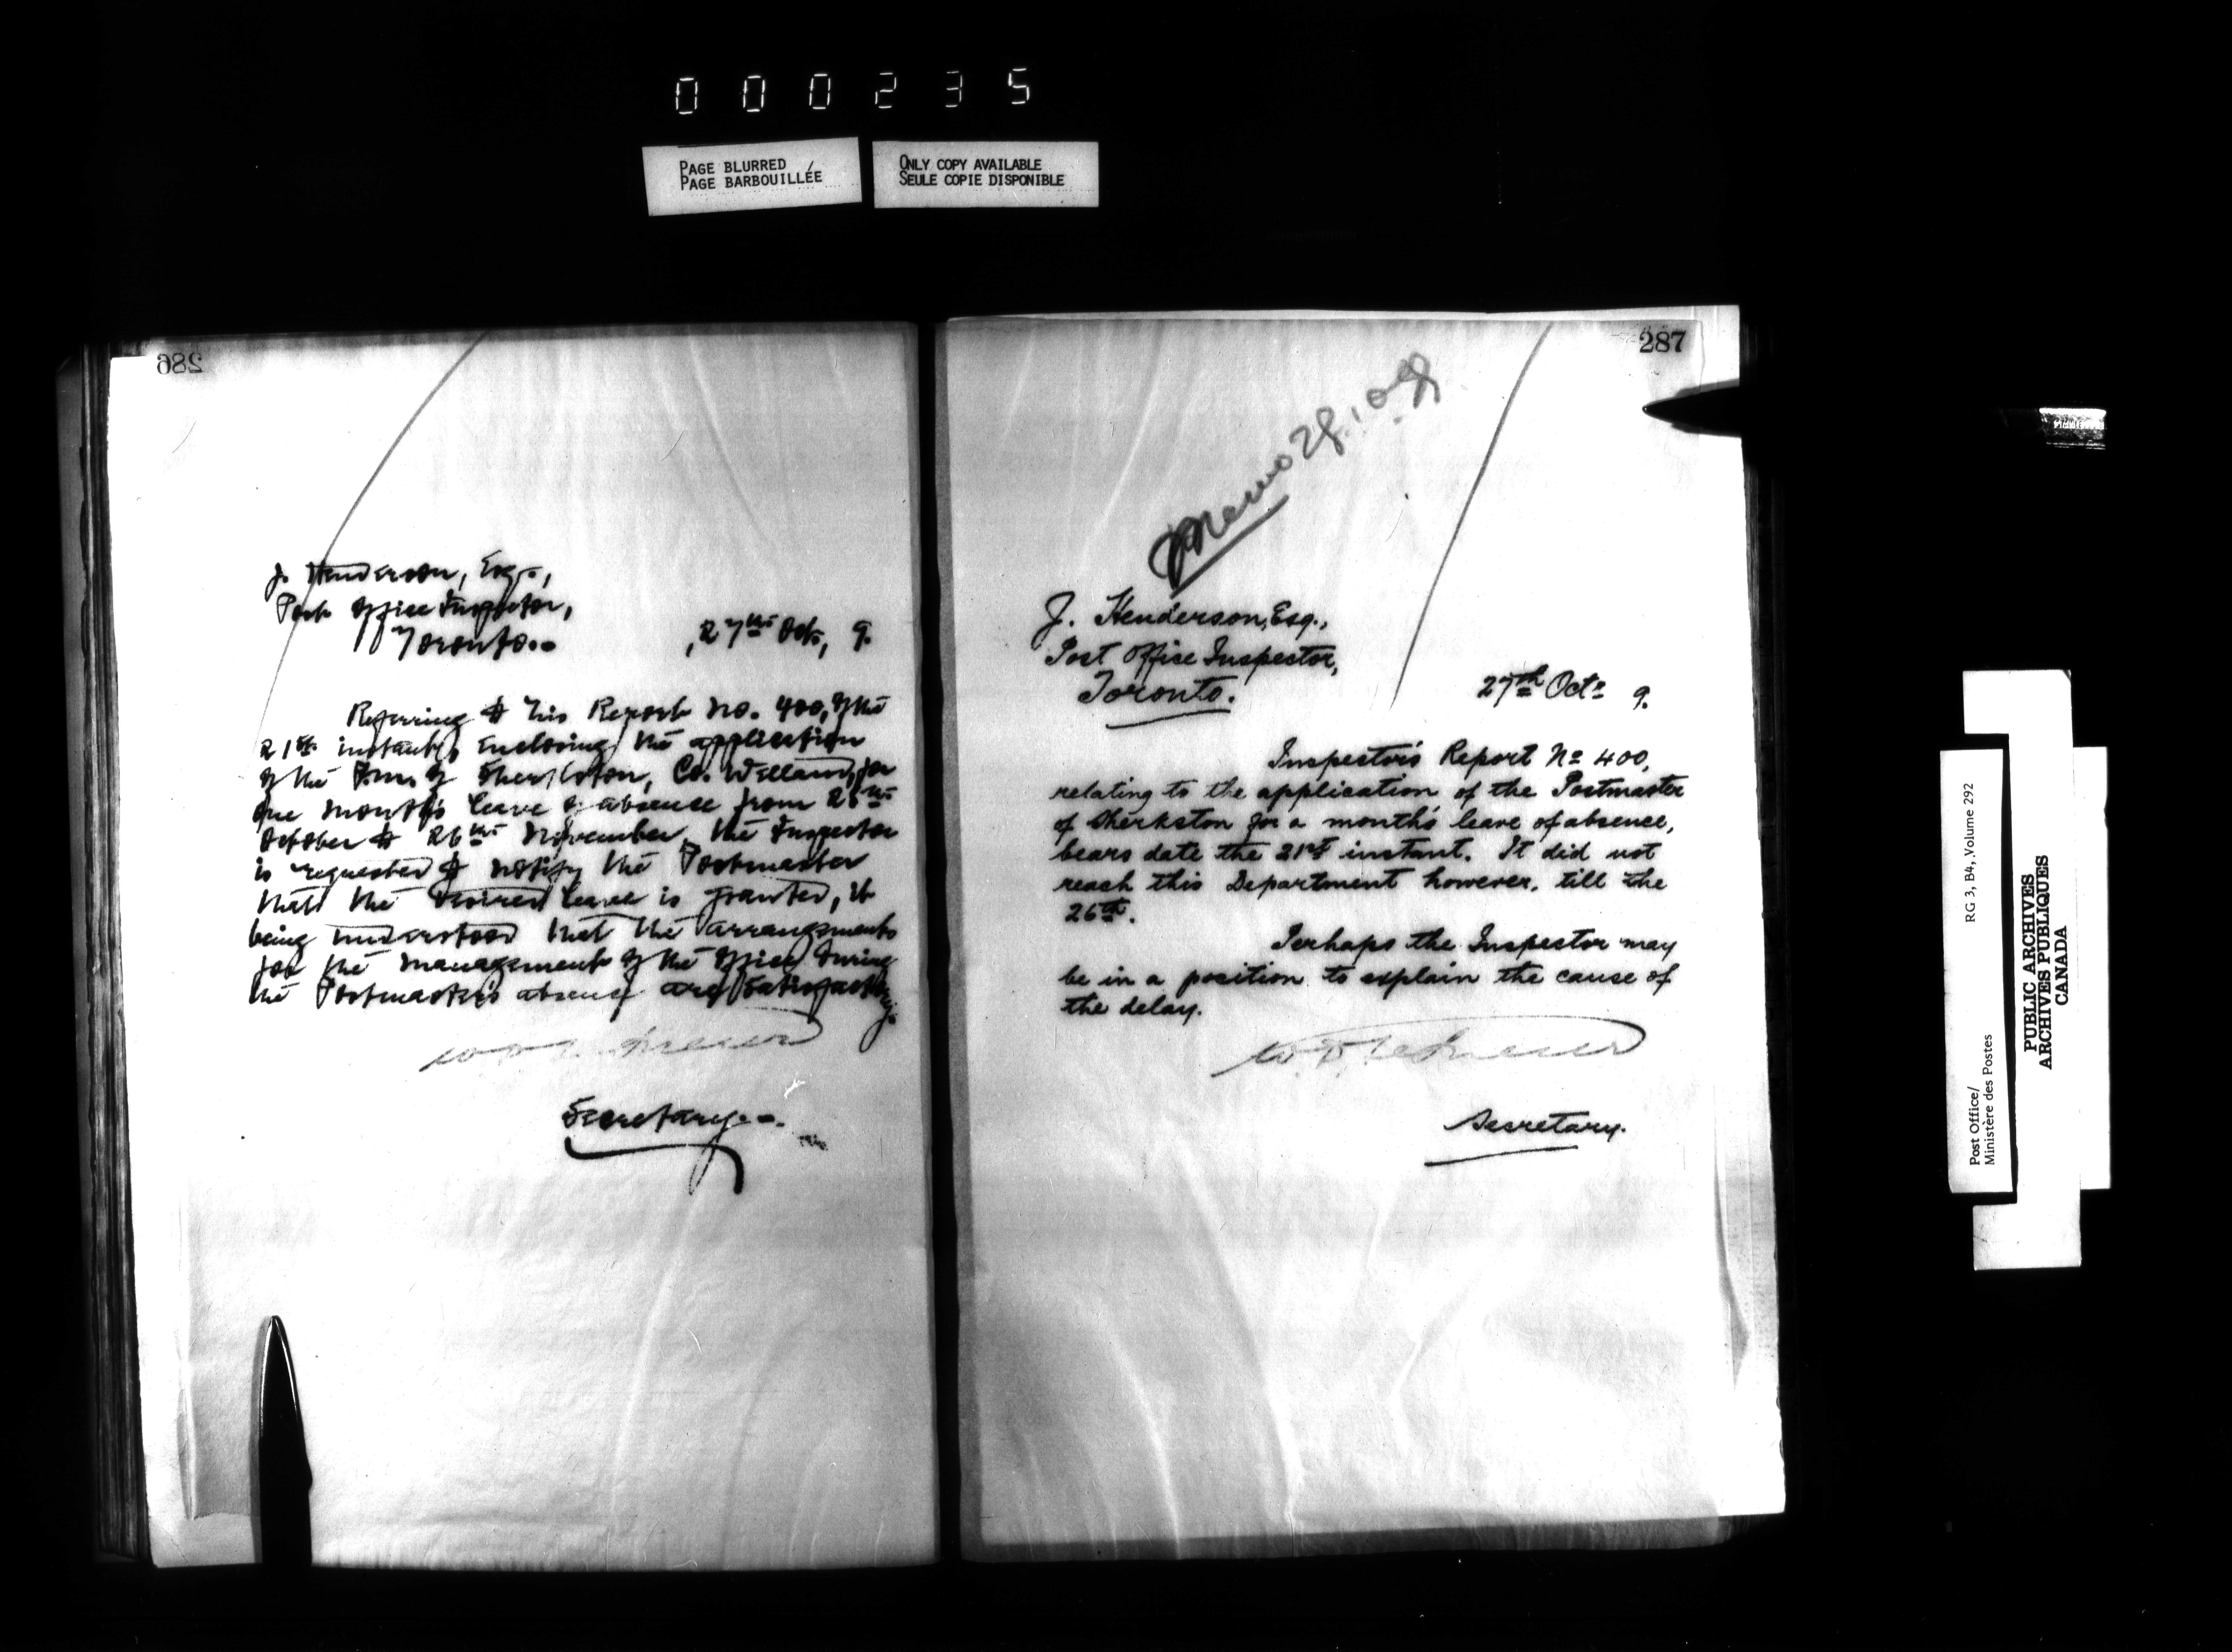 000235
PAGE BLURRED
PAGE BARBOUILLÉE
ONLY COPY AVAILABLE
SEULE COPIE DISPONIBLE
286
J. Henderson, Esq.,
Post Office Inspector,
Toronto.
27th Oct, 9.
Referring to his Report No. 400, of the
21st instant, enclosing the application
of the P.M. of Sherkston, Co. Welland, for
one month's leave of absence from
October to 26th November, the Inspector
is requested to notify the Postmaster
that the desired leave is granted, it
being understood that the arrangements
for the management of the office during
the Postmaster's absence are satisfactory.
Secretary.
287
Memo
J. Henderson, Esq.,
Post Office Inspector,
Toronto.
27th Oct. 9.
Inspector's Report No 400,
relating to the application of the Postmaster
of Sherkston for a month's leave of absence,
bears date the 21st instant. It did not
reach this Department however, till the
26th.
Perhaps the Inspector may
be in a position to explain the cause of
the delay.
Secretary.
Post Office/
Ministère des Postes
RG 3, B4, Volume 292
PUBLIC ARCHIVES
ARCHIVES PUBLIQUES
CANADA